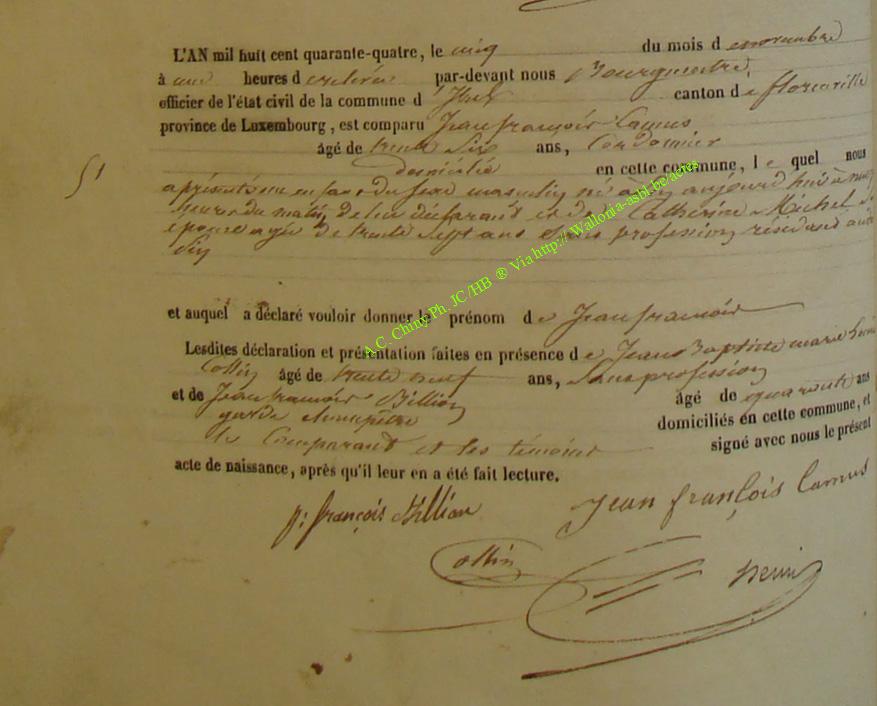 L'AN mil huit cent quarante-quatre, le cinq du mois d e novembre
à une heures d e relevée par-devant nous Bourgmestre,
officier de l'état civil de la commune d' canton d e florenville
province de Luxembourg, est comparu Jean françois Camus
âgé de trente Six ans, Cordonnier
51
domicilié en cette commune, l e quel nous
a présenté un enfant du sexe masculin né à aujourd'huis à neuf
heures du matin, de lui déclarant et de Catherine Michel
épouse agée de trente Sept ans Sans profession, résidant

et auquel a déclaré vouloir donner le prénom d e Jean françois
Lesdites déclaration et présentation faites en présence d e Jean Baptiste marie
Collin âgé de trente neuf ans, Sans profession
et de Jean françois Billion âgé de quarante ans
garde champêtre domiciliés en cette commune, et
le Comparant et les témoins signé avec nous le présent
acte de naissance, après qu'il leur en a été fait lecture.
françois Billion Jean françois Camus
Collin
A.C. Chiny Ph. JC/HB ® Via http://Wallonia-asbl.be/actes